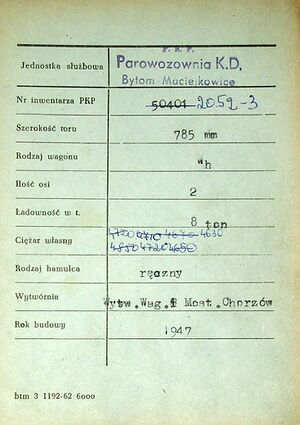 P. K. P.
Jednostka służbowa Parowozownia K.D.
Bytom Maciejkowice
Nr inwentarza PKP 50401 2052-3
Szerokość toru 785 mm
Rodzaj wagonu Wh
Ilość osi 2
Ładowność w t. 8 ton
4700 4710 4670 4630
Ciężar własny
4850 4720 4650
Rodzaj hamulca ręczny
Wytwórnia Wytw.Wag.i Most.Chorzów
Rok budowy 1947
btm 3 1192-62 6000